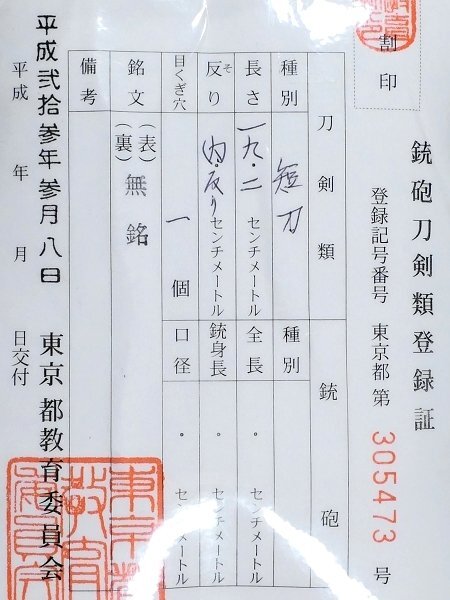 割印
銃砲刀剣類登録証
登録記号番号 東京都第 305473 号
刀剣類
銃砲
種別 短刀
種別
長さ 一九・二 センチメートル
全長 ・ センチメートル
反り そ 内・反り センチメートル
銃身長 ・ センチメートル
目くぎ穴 一 個
口径 ・ センチメートル
銘文 (表) (裏) 無銘
備考
平成弐拾参年参月八日
平成 年 月 日交付
東京都教育委員会
東京都教育委員会